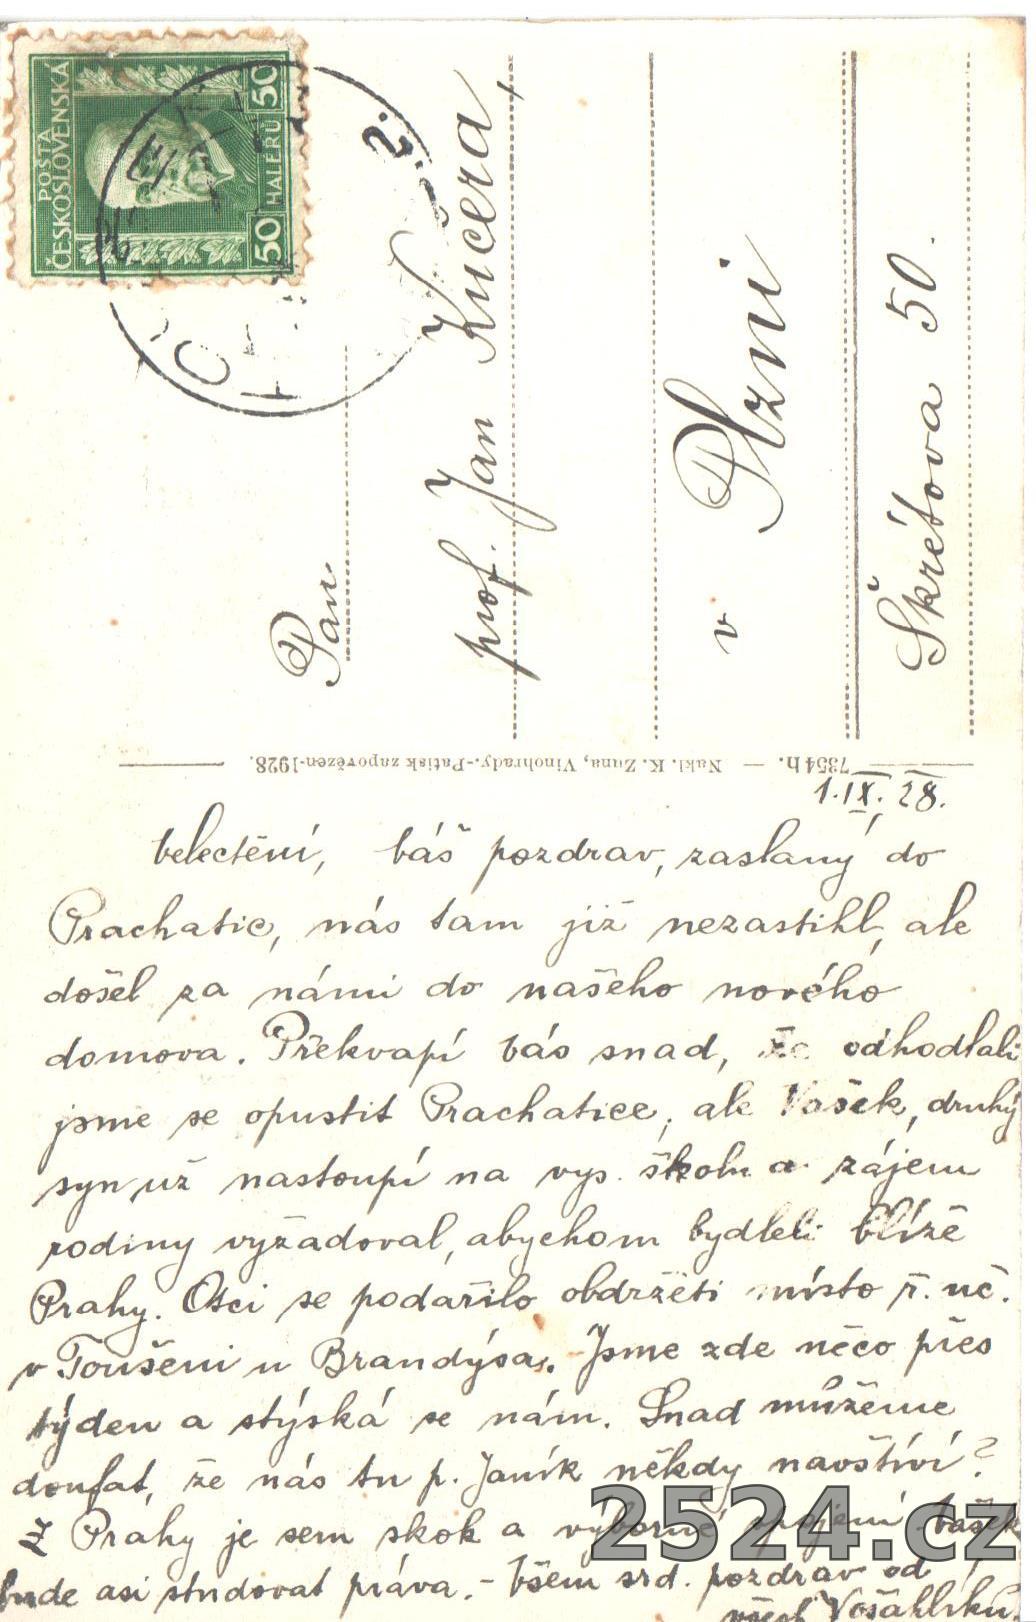 POŠTA
ČESKOSLOVENSKÁ
50 HALÉŘŮ 50
Pan
prof. Jan Kučera,
v Plzni
Škrétova 50.
7354h. — Nakl. K. Zuna, Vinohrady.-Patisk zapovězen-1928.
1.IX. 28.
Velectění, Váš pozdrav, zaslaný do
Prachatic, nás tam již nezastihl, ale
došel za námi do našeho nového
domova. Překvapí Vás snad, že odhodlali
jsme se opustit Prachatice, ale Vašek, druhý
syn už nastoupí na vys. školu a zájem
rodiny vyžadoval, abychom bydleli blíže
Prahy. Otci se podařilo obdržeti místo ř. uč.
v Toušeni u Brandýsa. Jsme zde něco přes
týden a stýská se nám. Snad můžeme
doufat, že nás tu p. Janík někdy navštíví?
Z Prahy je sem skok a výborné spojení. Vašek
bude asi studovat práva. - Všem srd. pozdrav od
všech Vošahlíků
2524.cz